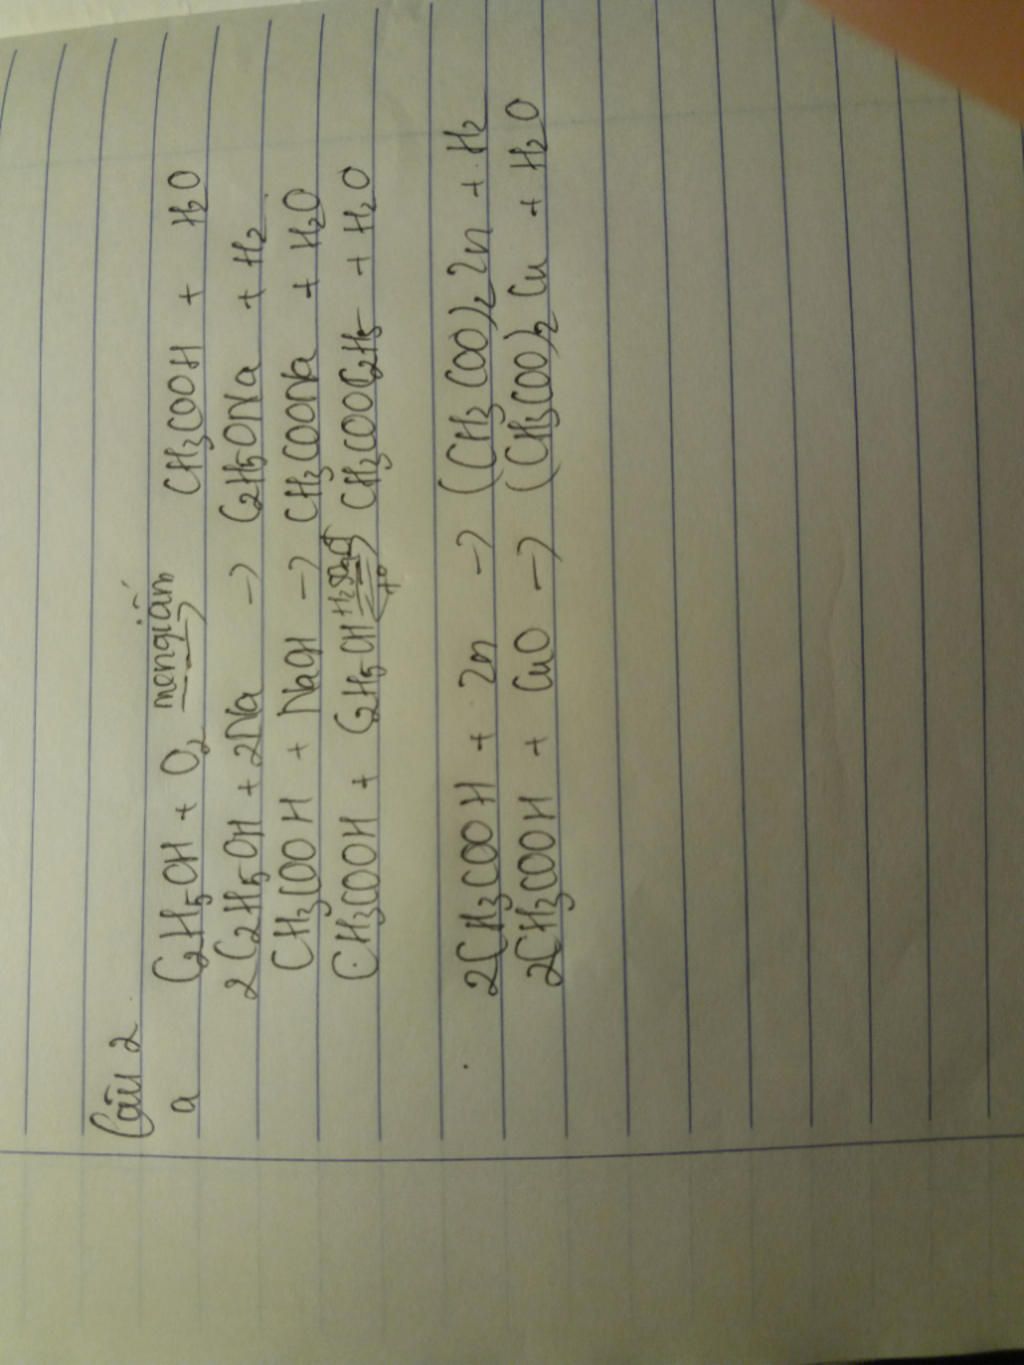 Câu 2
a C₂H₅OH + O₂ men giấm → CH₃COOH + H₂O
2C₂H₅OH + 2Na → C₂H₅ONa + H₂
CH₃COOH + NaOH → CH₃COONa + H₂O
CH₃COOH + C₂H₅OH ⇌ t° CH₃COOC₂H₅ + H₂O
2CH₃COOH + Zn → (CH₃COO)₂Zn + H₂
2CH₃COOH + CuO → (CH₃COO)₂Cu + H₂O